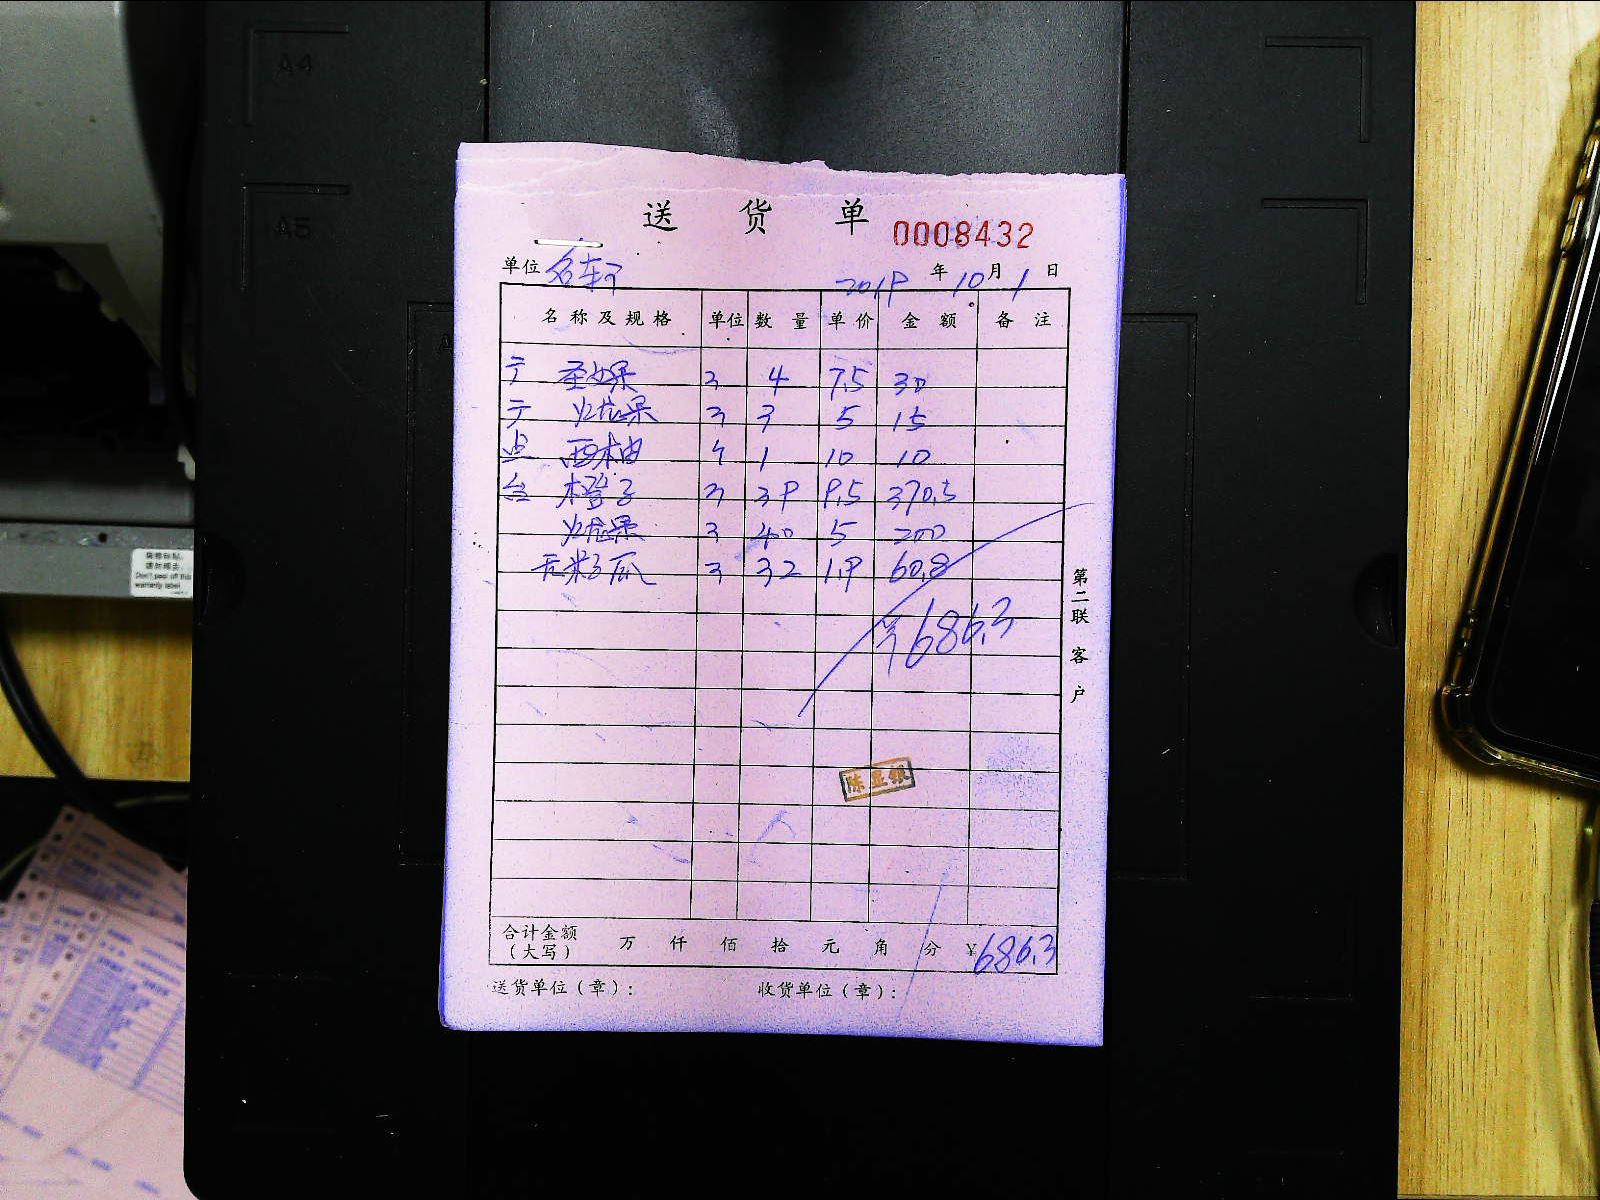 A4
A5
送货单 0008432
单位 名轩 2019 年 10 月 1 日
名称及规格 单位 数量 单价 金额 备注
圣女果 4 7.5 30
火龙果 3 5 15
点 西柚 个 1 10 10
台 橙子 39 9.5 370.5
火龙果 40 5 200
无籽瓜 32 1.9 60.8
686.3
第二联 客户
陈亚银
合计金额(大写) 万 仟 佰 拾 元 角 分 ¥686.3
送货单位(章): 收货单位(章):
Don't peel off this
warranty label